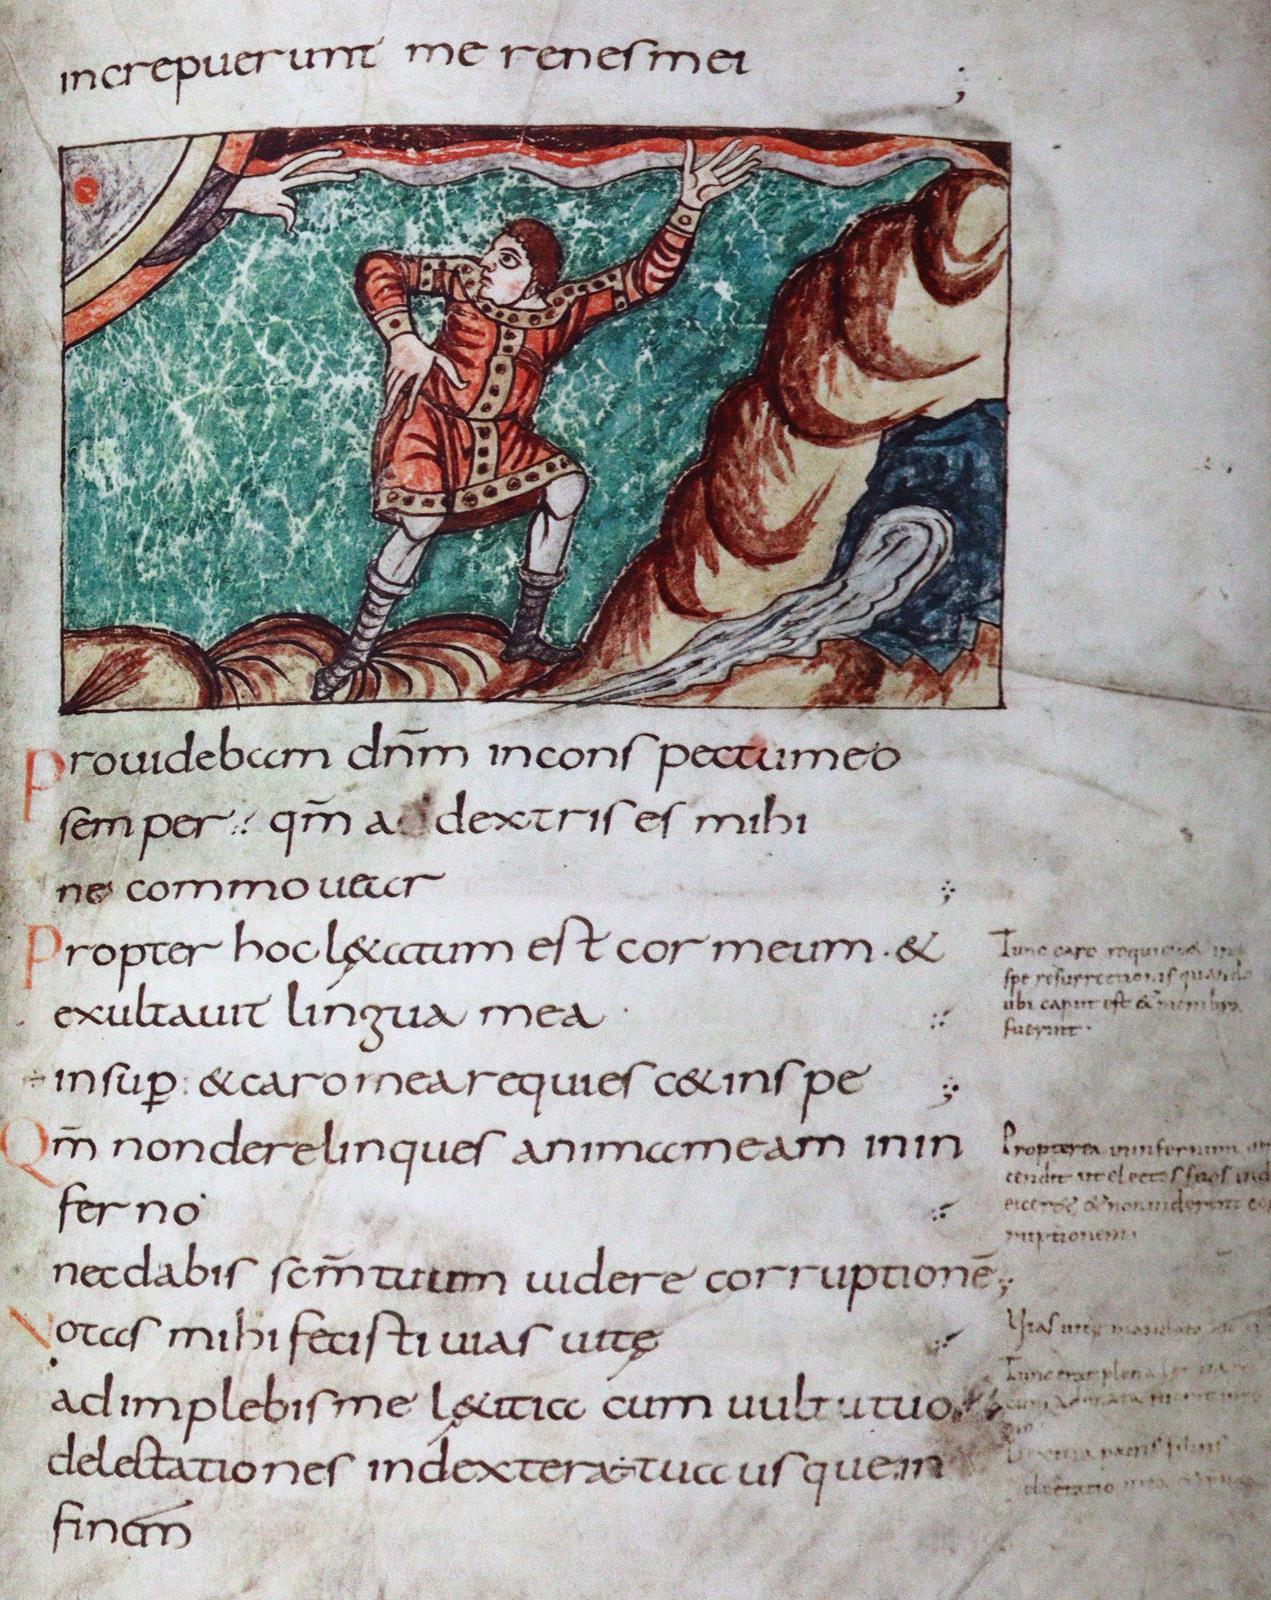 increpuerunt me renes mei ;
Prouidebam dn̄m in conspectu meo
semper qm̄ a dextris es mihi
ne commouear
Propter hoc l&atum est cor meum · &
exultauit lingua mea
insup̱ & caro mea requiesc& in spe ;
Qm̄ non derelinques animam meam in in
ferno
nec dabis sc̄m tuum uidere corruptionē ;
Notas mihi fecisti uias uitę
adimplebis me l&itia cum uultu tuo
delectationes in dextera tua usque in
finem
Tunc caro requies& in
spe resurrectionis quando
ubi caput est & membra
fuerint ·
Propterea in infernum
cendit ut electos suos
& non uiderent
ruptionem
Vias uitę mandata
Tunc erit plena
Dextera patris filius